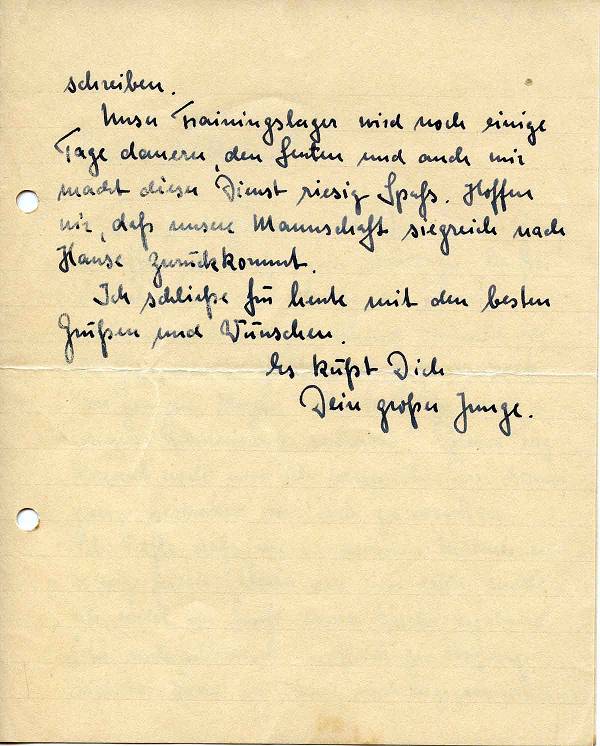 schreiben.
Unser Trainingslager wird noch einige
Tage dauern, den Leuten und auch mir
macht dieser Dienst riesig Spaß. Hoffen
wir, daß unsere Mannschaft siegreich nach
Hause zurückkommt.
Ich schließe für heute mit den besten
Grüßen und Wünschen.
Es küßt Dich
Dein großer Junge.